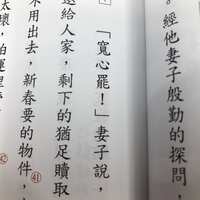 。經他妻子殷勤的探問，
「寬心罷！」妻子說，
送給人家，剩下的猶足贖取
不用出去，新春要的物件，㊶
太壞，怕運